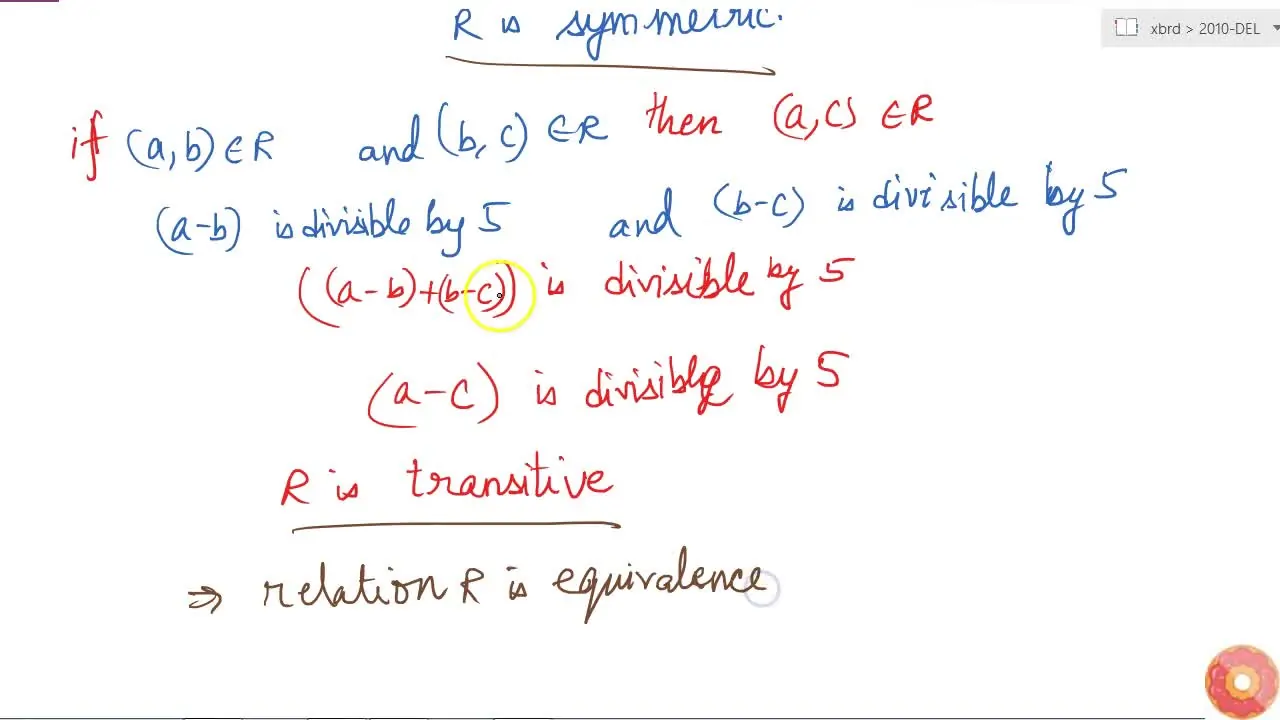 R is symmetric.
xbrd > 2010-DEL
if (a,b) ∈ R and (b,c) ∈ R then (a,c) ∈ R
(a-b) is divisible by 5 and (b-c) is divisible by 5
((a-b)+(b-c)) is divisible by 5
(a-c) is divisible by 5
R is transitive
⇒ relation R is equivalence